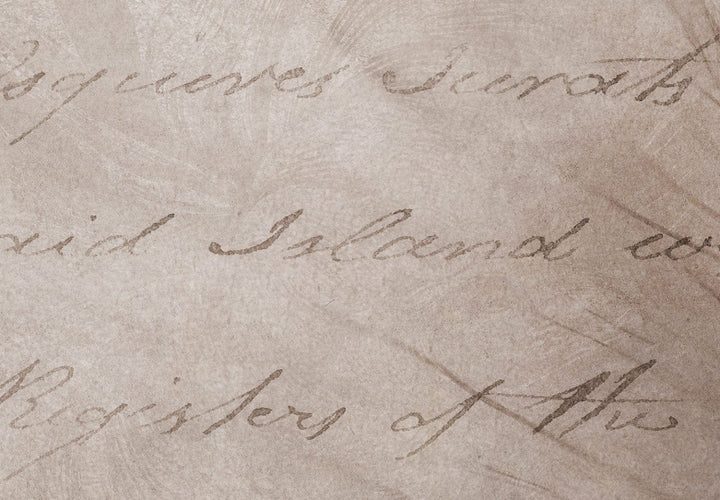 Esquires Jurats
said Island w
Registers of the